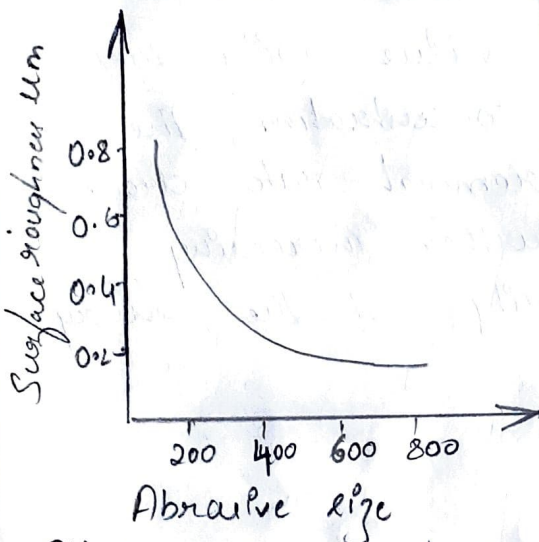 Surface roughness um
0.8
0.6
0.4
0.2
200 400 600 800
Abrasive size